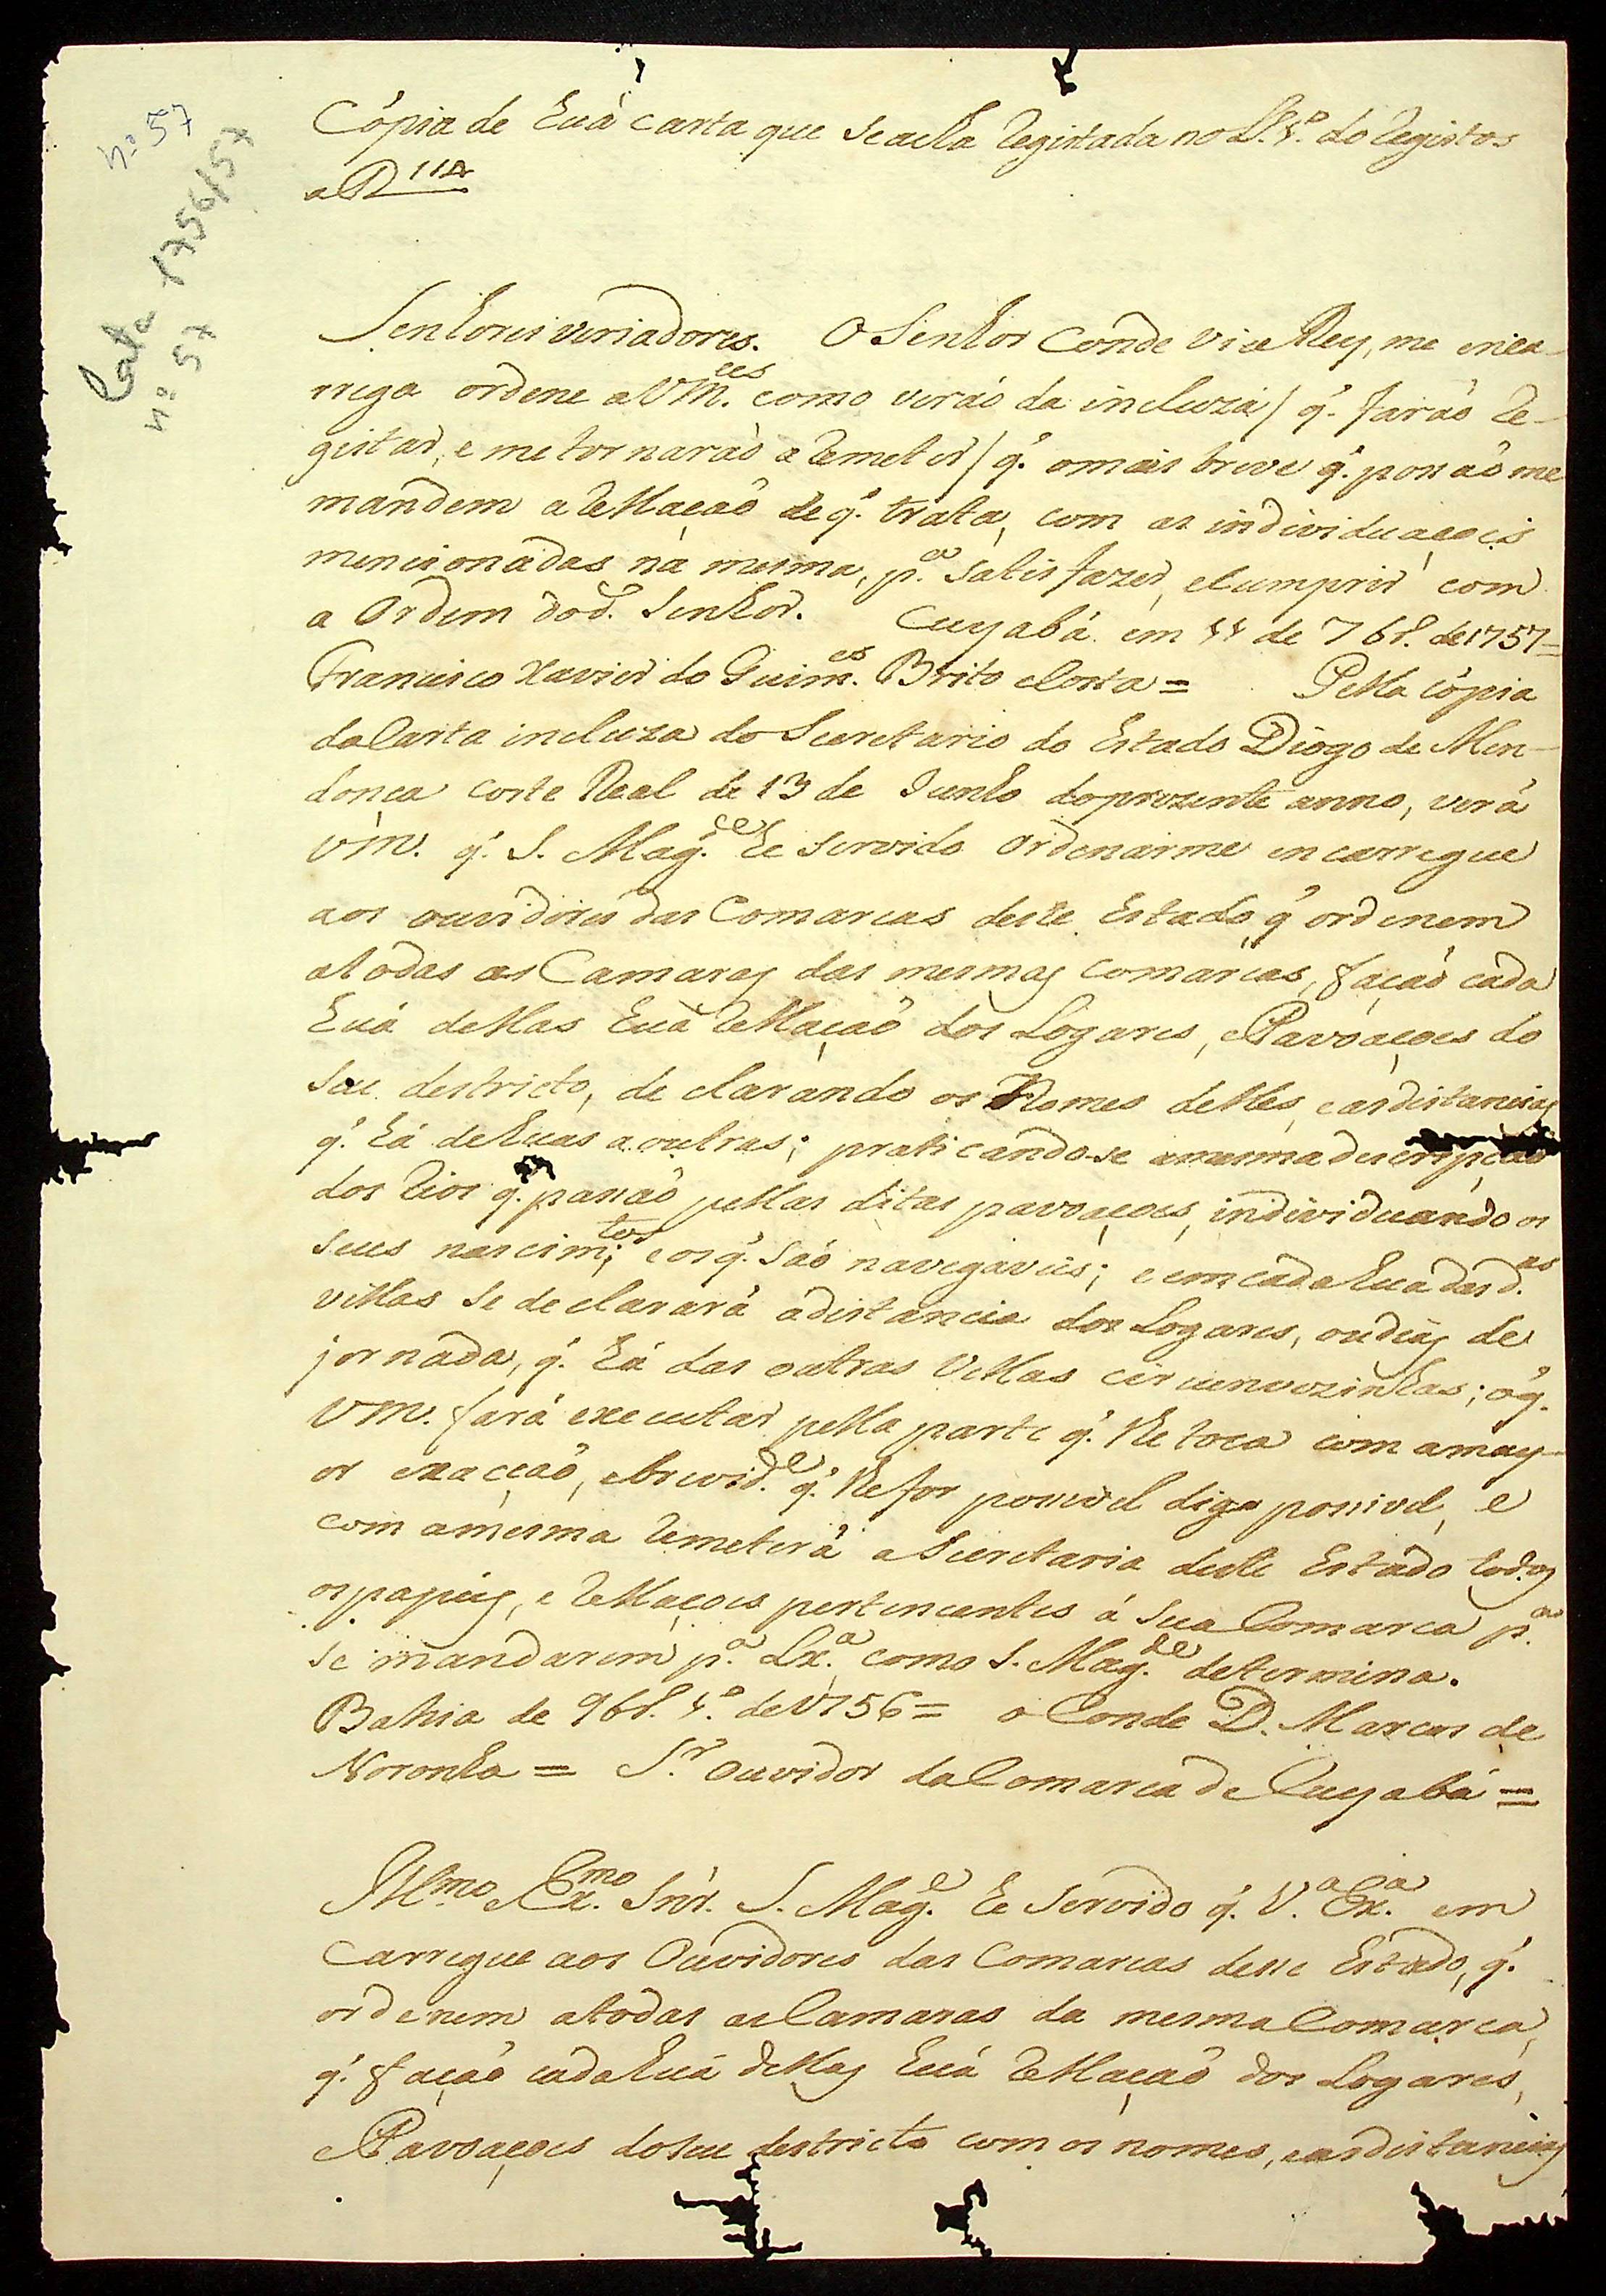 nº 57
Lata 1756/57
nº 57
Cópia de huã carta que se acha Registada no L.º 4.º do Registos
a f 118
Senhores veriadores. O Senhor Conde Vice Rey, me enca-
rrega ordene a VM.ces como verão da incluza / q̃. farão Re-
gistar, e me tornarão a Remeter / q̃. o mais breve q̃. posão me
mandem a Rellação de q̃. trata, com as individuaçois
mencionadas na mesma, p.ª satisfazer, e Cumprir com
a Ordem do d.º Senhor. Cuyabá em 11 de 7br.º de 1757=
Francisco Xavier do Guim.es Brito e Costa = Pella cópia
da Carta incluza do Secretario do Estado Diogo de Men-
donça Corte Real de 13 de Junho do prezente anno, verá
VM. q̃. S. Mag.de he servido ordenarme encarregue
aos ouvidores das Comarcas deste Estado, q̃ ordenem
a todas as Camaras das mesmas comarcas, fação cada
huã dellas huã Rellação dos Logares, e Pavoaçoes do
seu destricto, declarando os Nomes delles, e as distancias
q̃. há de huas a outras; praticando-se a mesma descripção
dos Rios q̃. passão pellas ditas pavoaçoes, individuando os
seus nascim.tos; e os q̃. são navegaveis; e em cada hua das d.as
villas se declarará a distancia dos Logares, ou dias de
jornada, q̃. há das outras Villas circunvezinhas; o q̃.
VM. fará executar pella parte q̃. lhe toca com a may-
or exacção, e brevid.e q̃. lhe for possivel digo possivel, e
com a mesma Remeterá a Secretaria deste Estado todos
os papeis, e Rellaçois pertencentes á sua Comarca p.ª
se mandarem p.ª Lx.ª como S. Mag.de determina.
Bahia de 9br.º 4.º de 1756= o Conde D. Marcos de
Noronha = S.r Ouvidor da Comarca de Cuyabá =
Ill.mo e Ex.mo Snr. S. Mag.e he servido q̃. V.ª Ex.ª em
carregue aos Ouvidores das Comarcas desse Estado, q̃.
ordenem a todas as Camaras da mesma Comarca,
q̃. fação cada huã dellas huã Rellação dos Logares,
e Pavoaçoes do seu destricto com os nomes, e as distancias